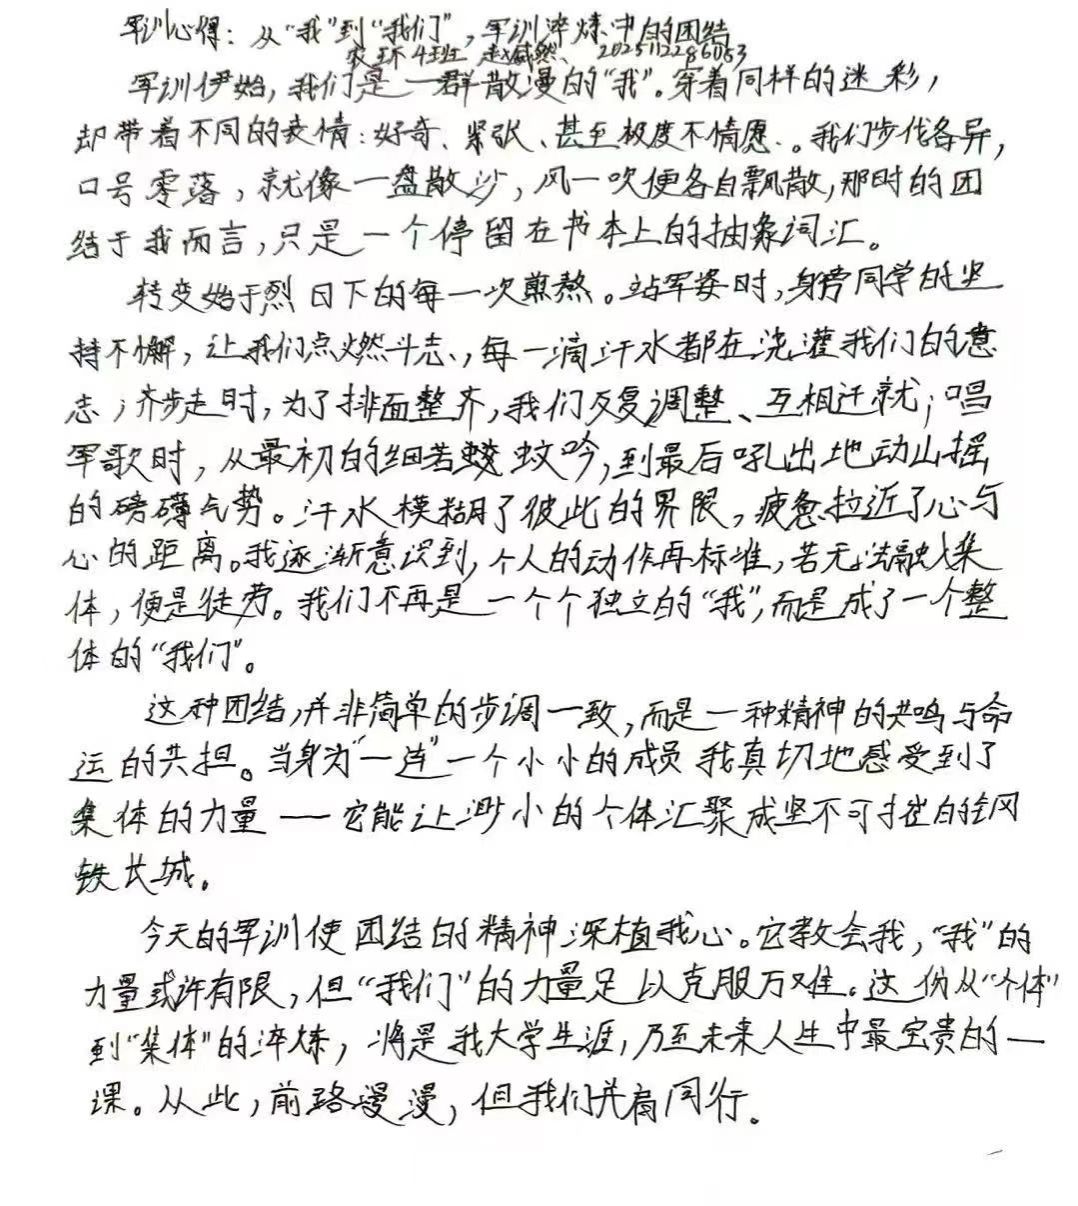 军训心得：从“我”到“我们”，军训淬炼中的团结
农环4班 赵威然、 2025112286053
军训伊始，我们是一群散漫的“我”。穿着同样的迷彩，
却带着不同的表情：好奇、紧张、甚至极度不情愿、。我们步伐各异，
口号零落，就像一盘散沙，风一吹便各自飘散，那时的团
结于我而言，只是一个停留在书本上的抽象词汇。
转变始于烈日下的每一次煎熬。站军姿时，身旁同学的坚
持不懈，让我们点燃斗志、，每一滴汗水都在浇灌我们的意
志；齐步走时，为了排面整齐，我们反复调整、互相迁就；唱
军歌时，从最初的细若蚊吟，到最后吼出地动山摇
的磅礴气势。汗水模糊了彼此的界限，疲惫拉近了心与
心的距离。我逐渐意识到，个人的动作再标准，若无法融入集
体，便是徒劳。我们不再是一个个独立的“我”，而是成了一个整
体的“我们”。
这种团结，并非简单的步调一致，而是一种精神的共鸣与命
运的共担。当身为“一连”一个小小的成员我真切地感受到了
集体的力量——它能让渺小的个体汇聚成坚不可摧的钢
铁长城。
今天的军训使团结的精神深植我心。它教会我，“我”的
力量或许有限，但“我们”的力量足以克服万难。这份从“个体”
到“集体”的淬炼，将是我大学生涯，乃至未来人生中最宝贵的一
课。从此，前路漫漫，但我们并肩同行。